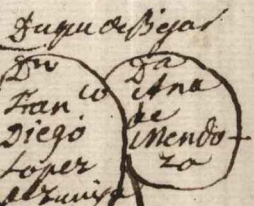 Duque de Bejar
Dn
Fran co
Diego
Lopez
de Zuniga
Da
Ana
de
Mendo-
za